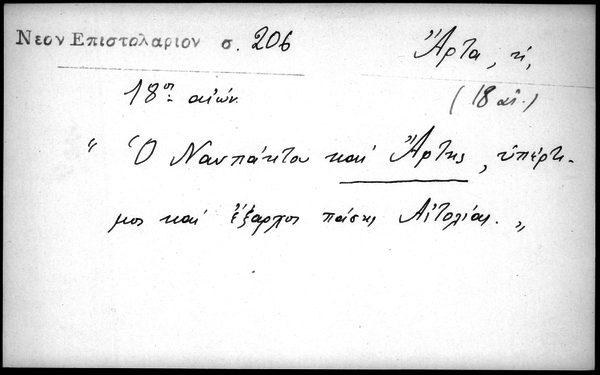 Νεον Επιστολαριον σ. 206
Ἄρτα, ἡ,
18ος αἰών.
(18 αἰ.)
“ Ὁ Ναυπάκτου καὶ Ἄρτης, ὑπέρτι-
μος καὶ ἔξαρχος πάσης Αἰτωλίας. „